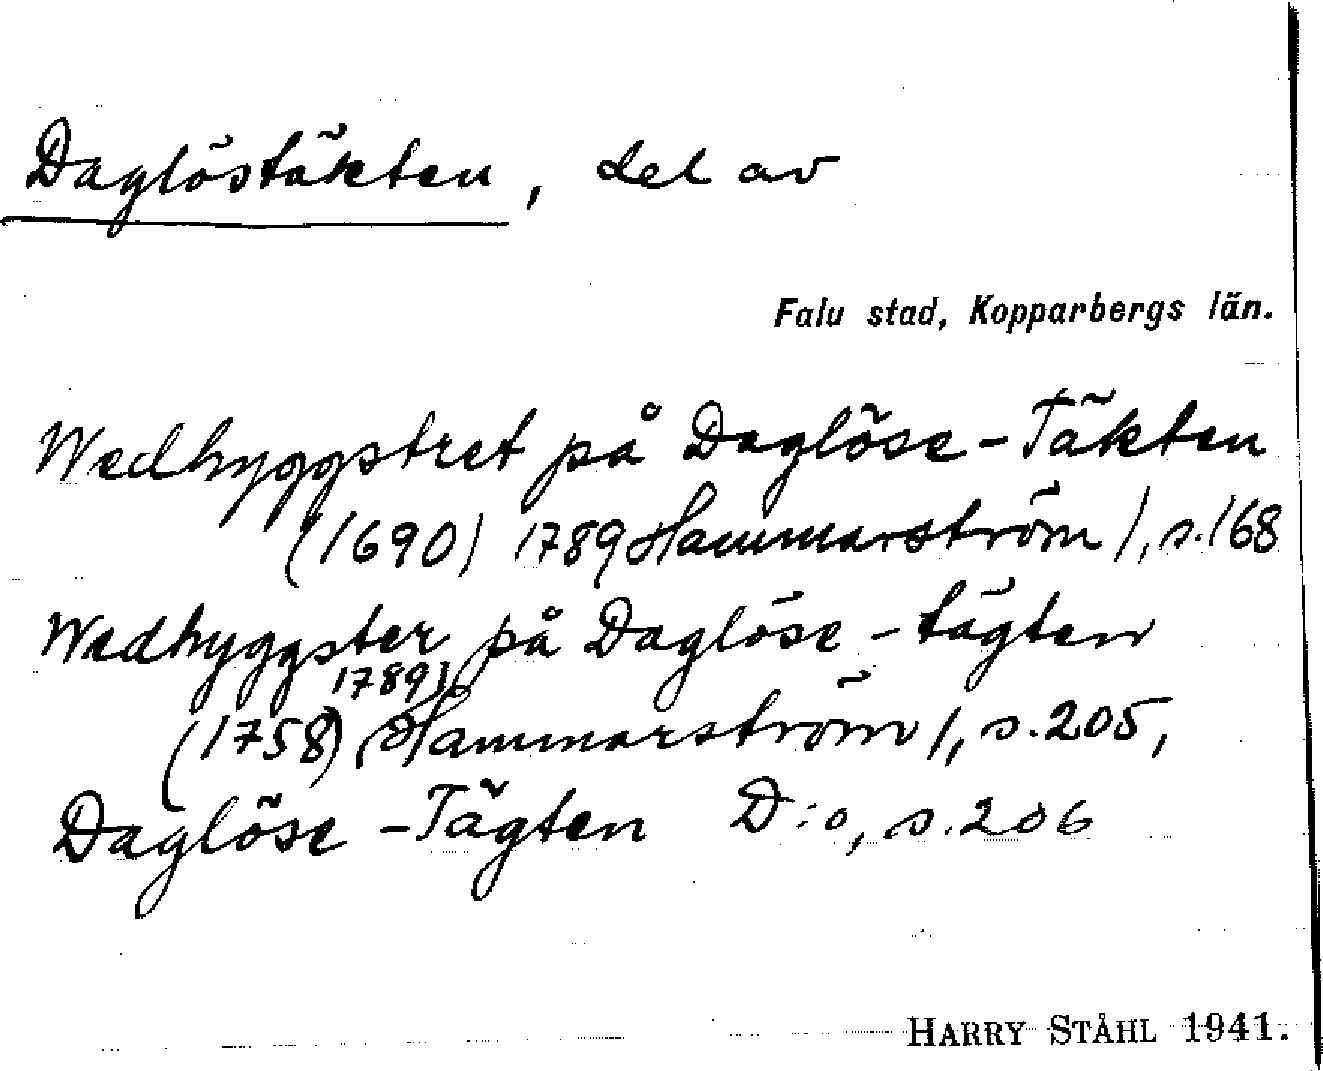 Daglöstäkten, del av
Falu stad, Kopparbergs län.
Wedhyggstret på Daglöse-Täkten
(1690) 1789 Hammarström 1, s. 168
Wedhyggster på Daglöse-tägten
1789)
(1758) (Hammarström 1, s. 205,
Daglöse-Tägten D:o, s. 206
HARRY STÅHL 1941.